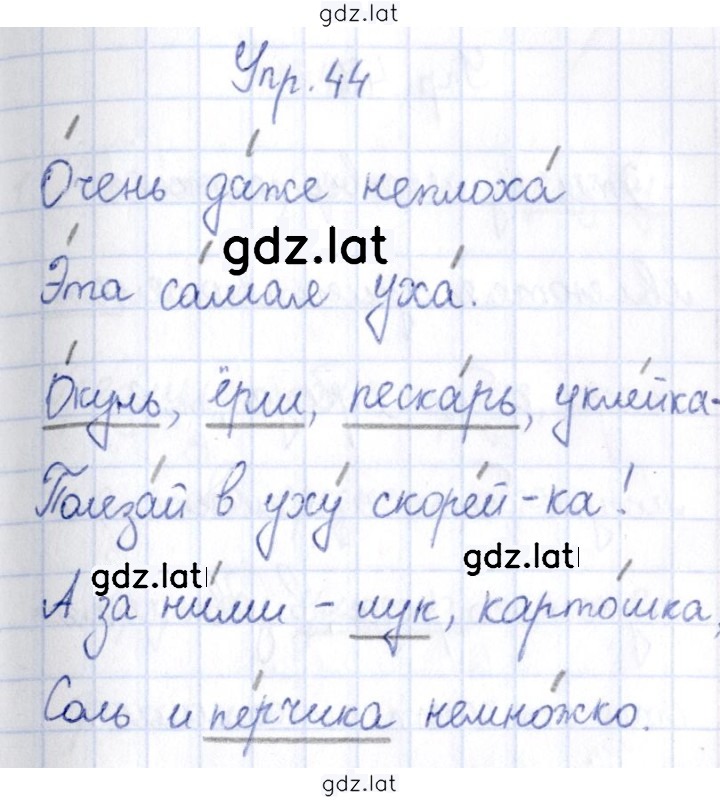 gdz.lat
Упр. 44
О́чень да́же неплоха́
gdz.lat
Э́та са́мая уха́.
О́кунь, ёрш, песка́рь, укле́йка-
Полеза́й в уху́ скоре́й-ка!
gdz.lat gdz.lat
А за ни́ми - лук, карто́шка,
Соль и пе́рчика немно́жко.
gdz.lat